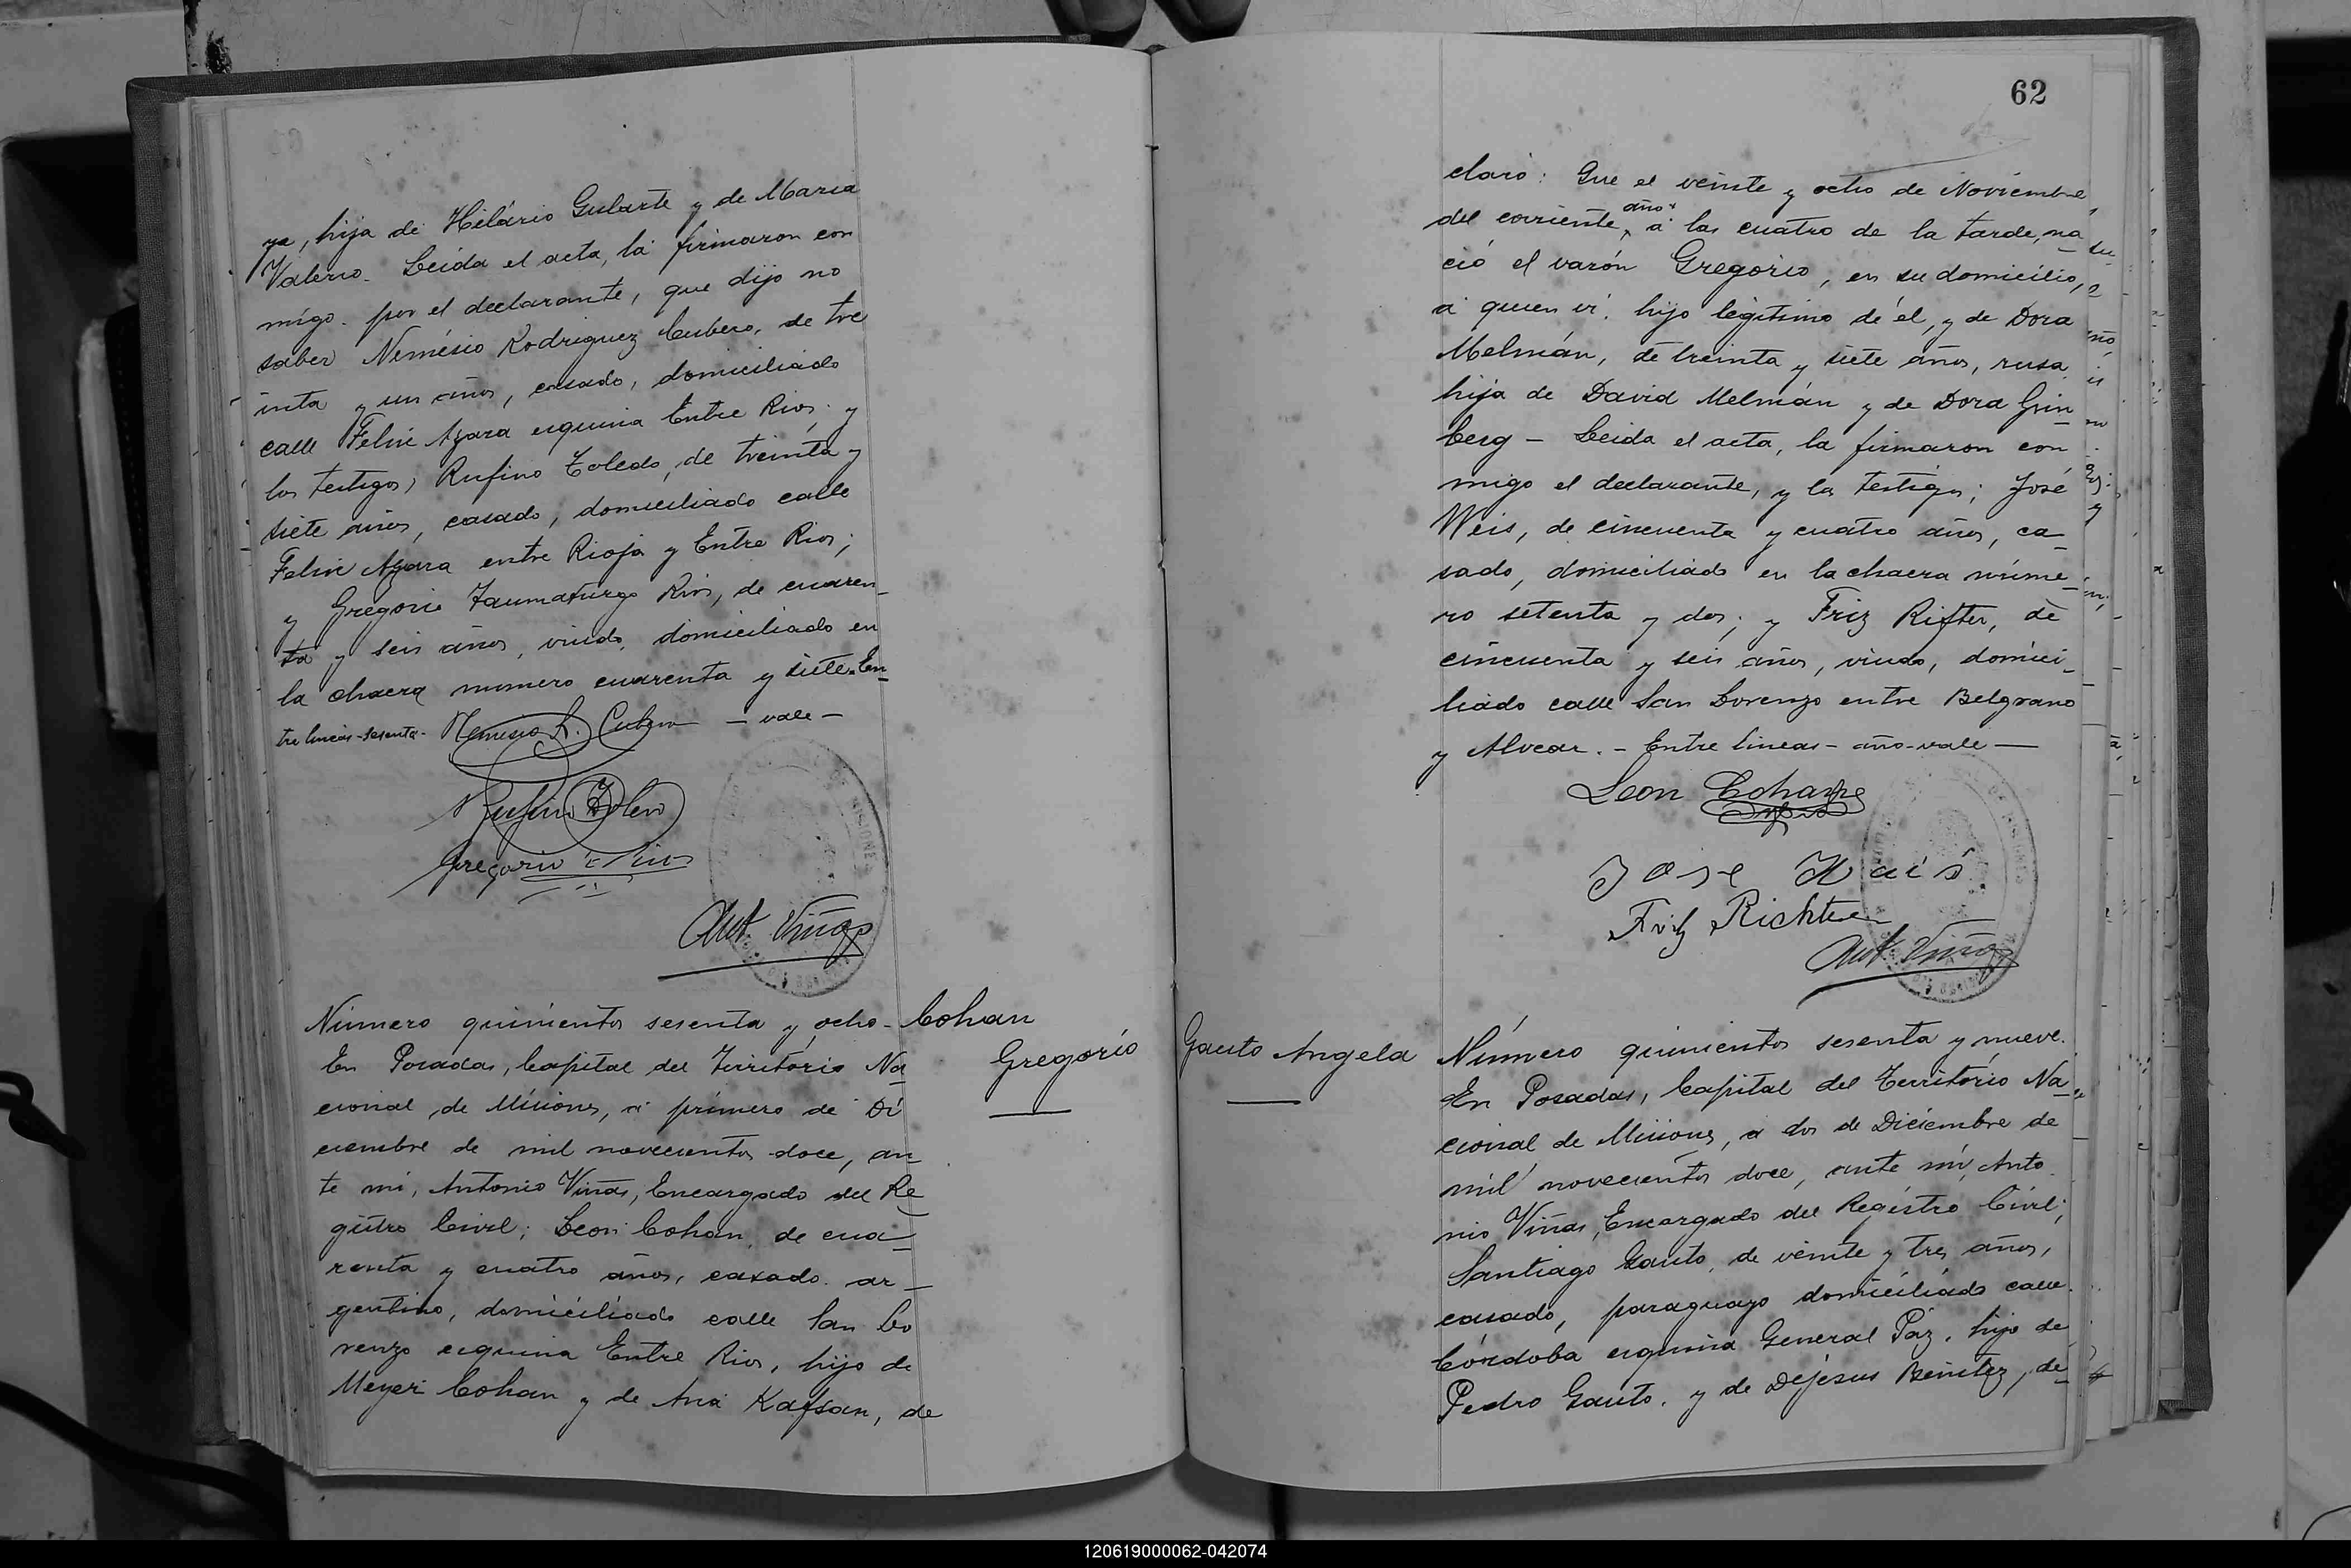 ya, hija de Hilário Gularte y de Maria
Valerio. Leida el acta, la firmaron con
migo. por el declarante, que dijo no
saber Nemésio Rodriguez Cubero, de tre
inta y un años, casado, domiciliado
calle Felix Azara esquina Entre Rios; y
los testigos; Rufino Toledo, de treinta y
siete años, casado, domiciliado calle
Felix Azara entre Rioja y Entre Rios;
y Gregorio Taumaturgo Rios, de cuaren_
ta y seis años, viudo, domiciliado en
la chacra numero cuarenta y siete. En_
tre lineas - sesenta - Nemesio R. Cubero - vale -
Rufino Toledo
Gregorio T. Rios
Ant. Viñas
Número quinientos sesenta y ocho -
En Posadas, Capital del Território Na_
cional de Misiones, á primero de Di
ciembre de mil novecientos doce, an_
te mi, Antonio Viñas, Encargado del Re_
gistro Civil; Leon Cohan, de cua_
renta y cuatro años, casado. ar_
gentino, domiciliado calle San Lo
renzo esquina Entre Rios, hijo de
Meyer Cohan y de Ana Kafsan, de
Cohan
Gregorio
62
claró: Que el veinte y ocho de Noviembre,
del corriente año, á las cuatro de la tarde, na_
ció el varón Gregorio, en su domicilio,
á quien vi. hijo légitimo de él, y de Dora
Melmán, de treinta y siete años, rusa,
hija de David Melmán y de Dora Grin_
berg - Leida el acta, la firmaron con
migo el declarante, y los testigos; José
Weis, de cincuenta y cuatro años, ca_
sado, domiciliado en la chacra núme_
ro setenta y dos; y Friz Rifter, de
cincuenta y seis años, viudo, domici_
liado calle San Lorenzo entre Belgrano
y Alvear. - Entre lineas - año - vale -
Leon Cohan
Jose Wais
Fritz Richter
Ant. Viñas
Gauto Angela
Número quinientos sesenta y nueve.
En Posadas, Capital del Território Na_
cional de Misiones, a dos de Diciembre de
mil novecientos doce, ante mi, Anto
nio Viñas, Encargado del Registro Civil;
Santiago Gauto, de veinte y tres años,
casado, paraguayo domiciliado calle
Córdoba esquina General Páz, hijo de
Pedro Gauto, y de Dejésus Benitez, de_
120619000062-042074